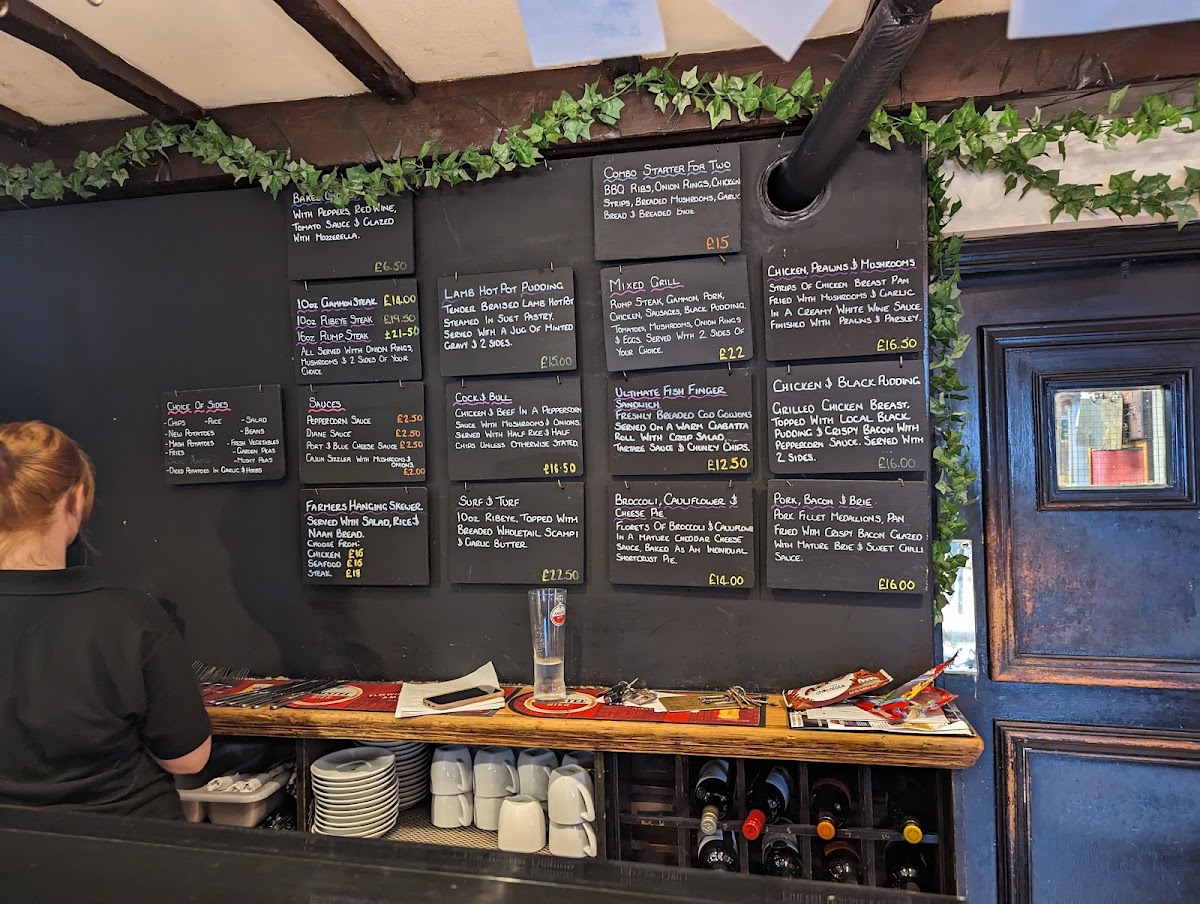 CHOICE OF SIDES
CHIPS -RICE - SALAD
-NEW POTATOES - BEANS
-MASH POTATOES - FRESH VEGETABLES
-FRIES - GARDEN PEAS
- MUSHY PEAS
-DICED POTATOES IN GARLIC & HERBS
BAKED
WITH PEPPERS, RED WINE,
TOMATO SAUCE & GLAZED
WITH MOZZERELLA.
£6.50
10OZ GAMMON STEAK £14.00
10OZ RIBEYE STEAK £19.50
16OZ RUMP STEAK £21-50
ALL SERVED WITH ONION RINGS,
MUSHROOMS & 2 SIDES OF YOUR
CHOICE
SAUCES
PEPPERCORN SAUCE £2.50
DIANE SAUCE £2.50
PORT & BLUE CHEESE SAUCE £2.50
CAJUN SIZZLER WITH MUSHROOMS &
ONIONS.
£2.00
FARMERS HANGING SKEWER
SERVED WITH SALAD, RICE &
NAAN BREAD.
CHOOSE FROM:
CHICKEN £16
SEAFOOD £16
STEAK £18
LAMB HOT POT PUDDING
TENDER BRAISED LAMB HOTPOT
STEAMED IN SUET PASTRY.
SERVED WITH A JUG OF MINTED
GRAVY & 2 SIDES.
£15.00
COCK & BULL
CHICKEN & BEEF IN A PEPPERCORN
SAUCE WITH MUSHROOMS & ONIONS.
SERVED WITH HALF RICE & HALF
CHIPS UNLESS OTHERWISE STATED.
£16.50
SURF & TURF
10OZ RIBEYE, TOPPED WITH
BREADED WHOLETAIL SCAMPI
& GARLIC BUTTER.
£22.50
COMBO STARTER FOR TWO
BBQ RIBS, ONION RINGS, CHICKEN
STRIPS, BREADED MUSHROOMS, GARLIC
BREAD & BREADED BRIE.
£15
MIXED GRILL
RUMP STEAK, GAMMON, PORK,
CHICKEN, SAUSAGES, BLACK PUDDING,
TOMATOES, MUSHROOMS, ONION RINGS
& EGGS. SERVED WITH 2 SIDES OF
YOUR CHOICE.
£22
ULTIMATE FISH FINGER
SANDWICH
FRESHLY BREADED COD GOUJONS
SERVED ON A WARM CIABATTA
ROLL WITH CRISP SALAD,
TARTARE SAUCE & CHUNKY CHIPS.
£12.50
BROCCOLI, CAULIFLOWER &
CHEESE PIE
FLORETS OF BROCCOLI & CAULIFLOWER
IN A MATURE CHEDDAR CHEESE
SAUCE, BAKED AS AN INDIVIDUAL
SHORTCRUST PIE.
£14.00
CHICKEN, PRAWNS & MUSHROOMS
STRIPS OF CHICKEN BREAST PAN
FRIED WITH MUSHROOMS & GARLIC
IN A CREAMY WHITE WINE SAUCE.
FINISHED WITH PRAWNS & PARSLEY.
£16.50
CHICKEN & BLACK PUDDING
GRILLED CHICKEN BREAST,
TOPPED WITH LOCAL BLACK
PUDDING & CRISPY BACON WITH
PEPPERCORN SAUCE. SERVED WITH
2 SIDES.
£16.00
PORK, BACON & BRIE
PORK FILLET MEDALLIONS, PAN
FRIED WITH CRISPY BACON GLAZED
WITH MATURE BRIE & SWEET CHILLI
SAUCE.
£16.00
AMSTEL
BIER